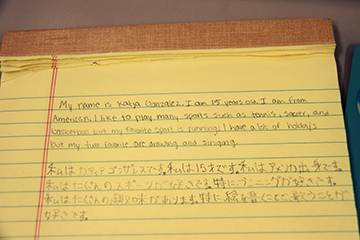 My name is Katja Gonzalez. I am 15 years old. I am from
American. I like to play many sports such as tennis, soccer, and
basketball but my favorite sport is running! I have a lot of hobby's
but my two favorite are drawing and singing.
私はカティアゴンザレスです。私は15才です。私はアメリカ出身です。
私はたくさんのスポーツが好きです。特にランニングが好きです。
私はたくさんの趣味があります。特に絵を書くことと歌うことが
好きです。